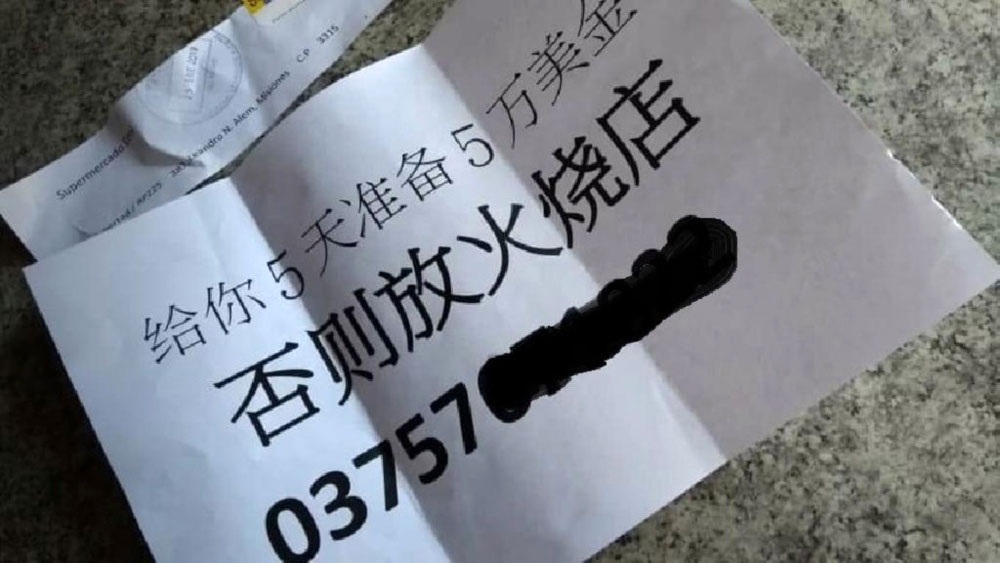 Supermercado
Leandro N. Alem, Misiones C.P 3315
给你5天准备5万美金
否则放火烧店
03757